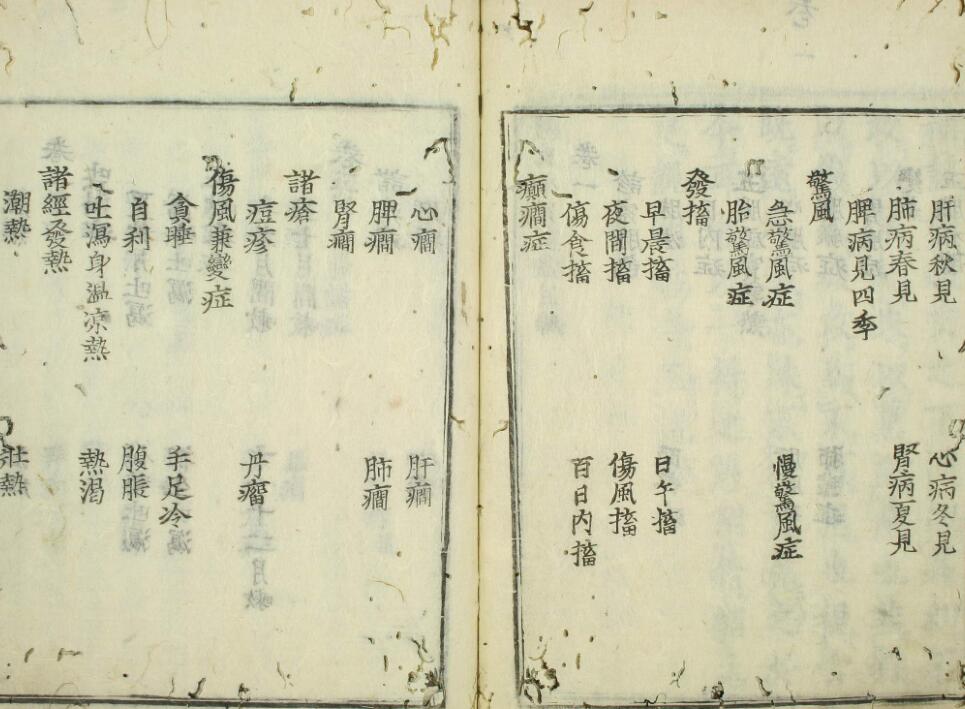 肝病秋見 心病冬見
肺病春見 腎病夏見
脾病見四季
驚風
急驚風症 慢驚風症
胎驚風症
發搐
早晨搐 日午搐
夜間搐 傷風搐
傷食搐 百日内搐
癲癇症
心癇 肝癇
脾癇 肺癇
腎癇
諸瘡
痘疹 丹瘤
傷風兼變症
貪睡 手足冷
自利 腹脹
吐瀉身溫凉熱 熱渴
諸經發熱
潮熱 壯熱